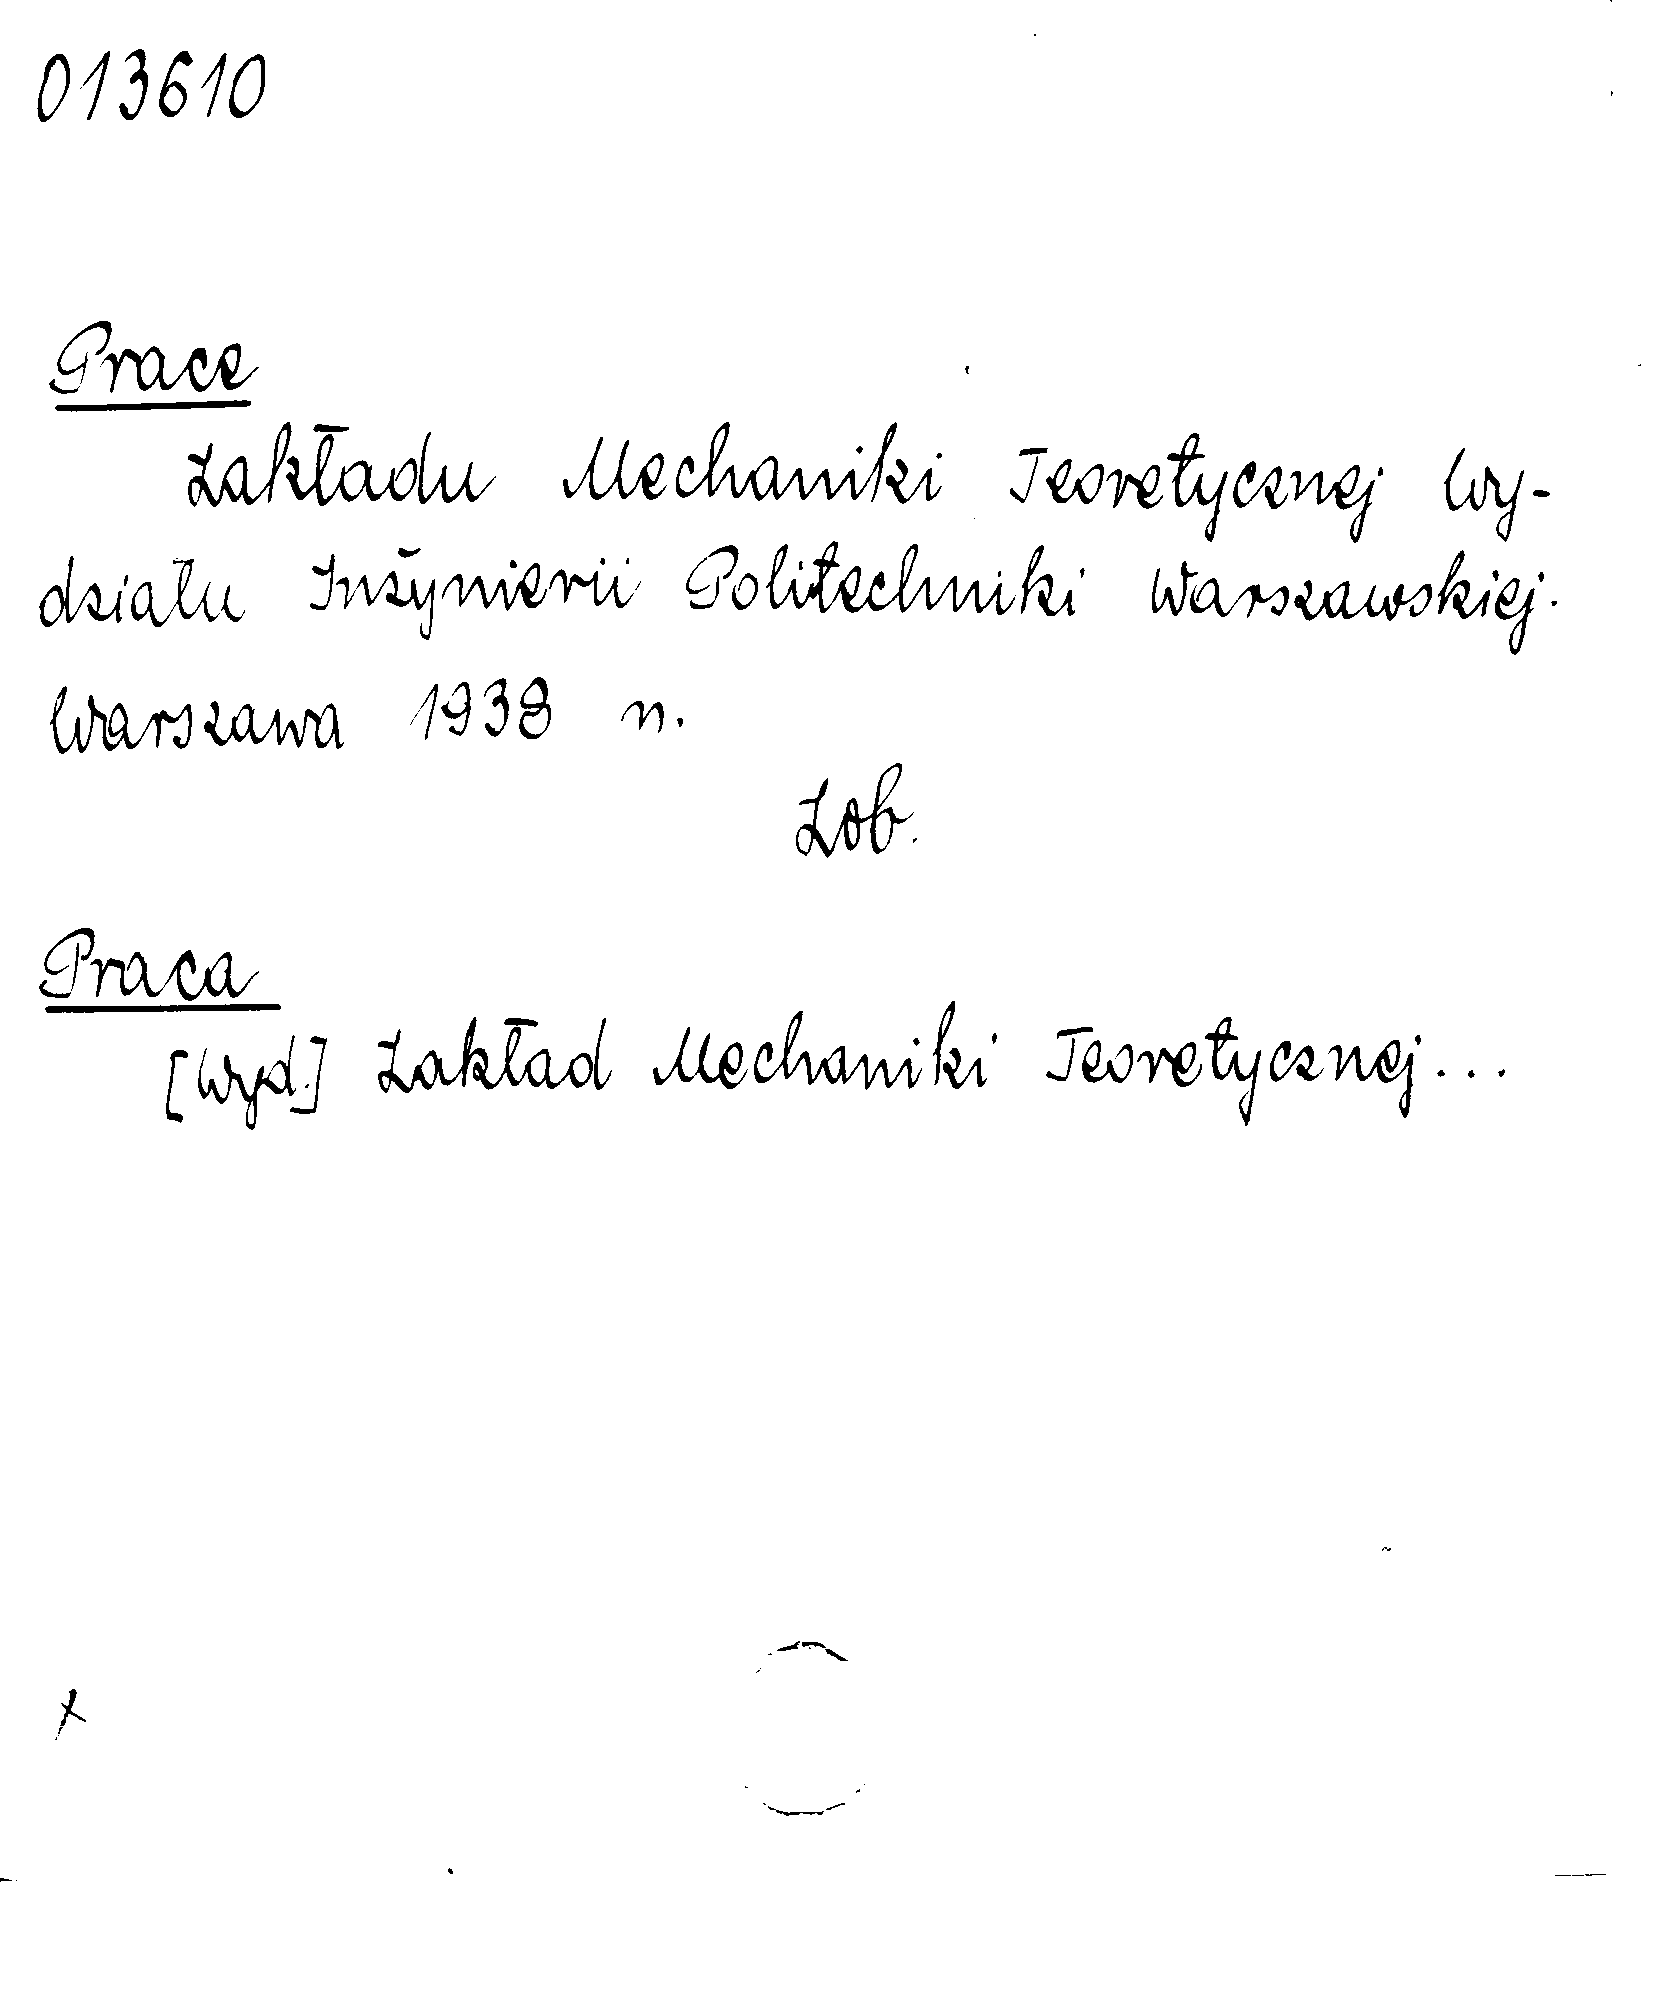 013610
Prace
Zakładu Mechaniki Teoretycznej Wy-
działu Inżynierii Politechniki Warszawskiej.
Warszawa 1938 n.
Zob.
Praca
[Wyd.] Zakład Mechaniki Teoretycznej...
x